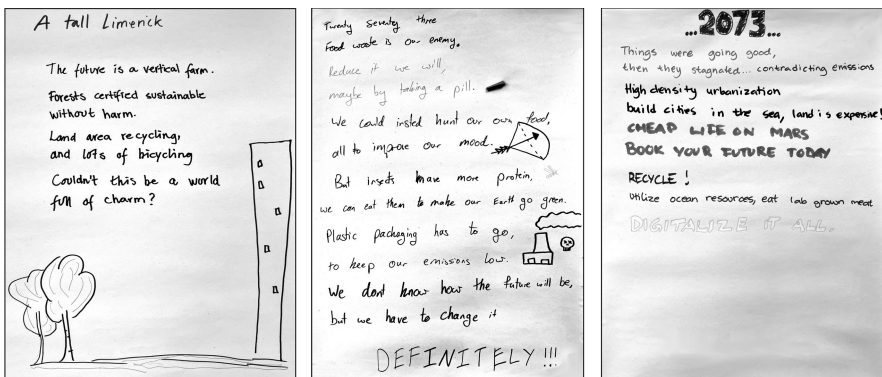 A tall Limerick
The future is a vertical farm.
Forests certified sustainable
without harm.
Land area recycling,
and lots of bicycling
Couldn't this be a world
full of charm?
Twenty seventy three
Food waste is our enemy.
Reduce it we will,
maybe by taking a pill.
We could insted hunt our own food,
all to improve our mood.
But insects have more protein,
we can eat them to make our Earth go green.
Plastic packaging has to go,
to keep our emissions low.
We dont know how the future will be,
but we have to change it
DEFINITELY!!!
...2073...
Things were going good,
then they stagnated... contradicting emissions
High density urbanization
build cities in the sea, land is expensive!
CHEAP LIFE ON MARS
BOOK YOUR FUTURE TODAY
RECYCLE!
Utilize ocean resources, eat lab grown meat
DIGITALIZE IT ALL.